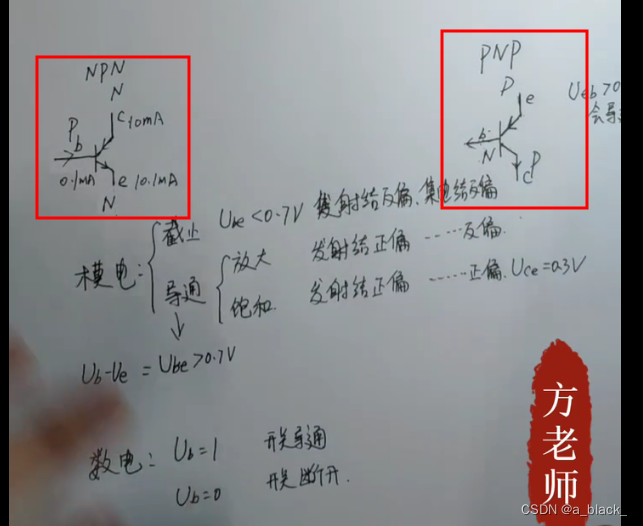 NPN
N
c 10mA
P
b
0.1mA
e 10.1mA
N
PNP
P
e
b
N
c P
Ueb>0
会导
模电:
截止 Ube<0.7V 发射结反偏、集电结反偏
导通
放大 发射结正偏 ……反偏.
饱和. 发射结正偏 ……正偏. Uce=0.3V
Ub-Ve = Ube>0.7V
数电: Ub=1 开关导通
Ub=0 开关断开.
方老师
CSDN @a_black_